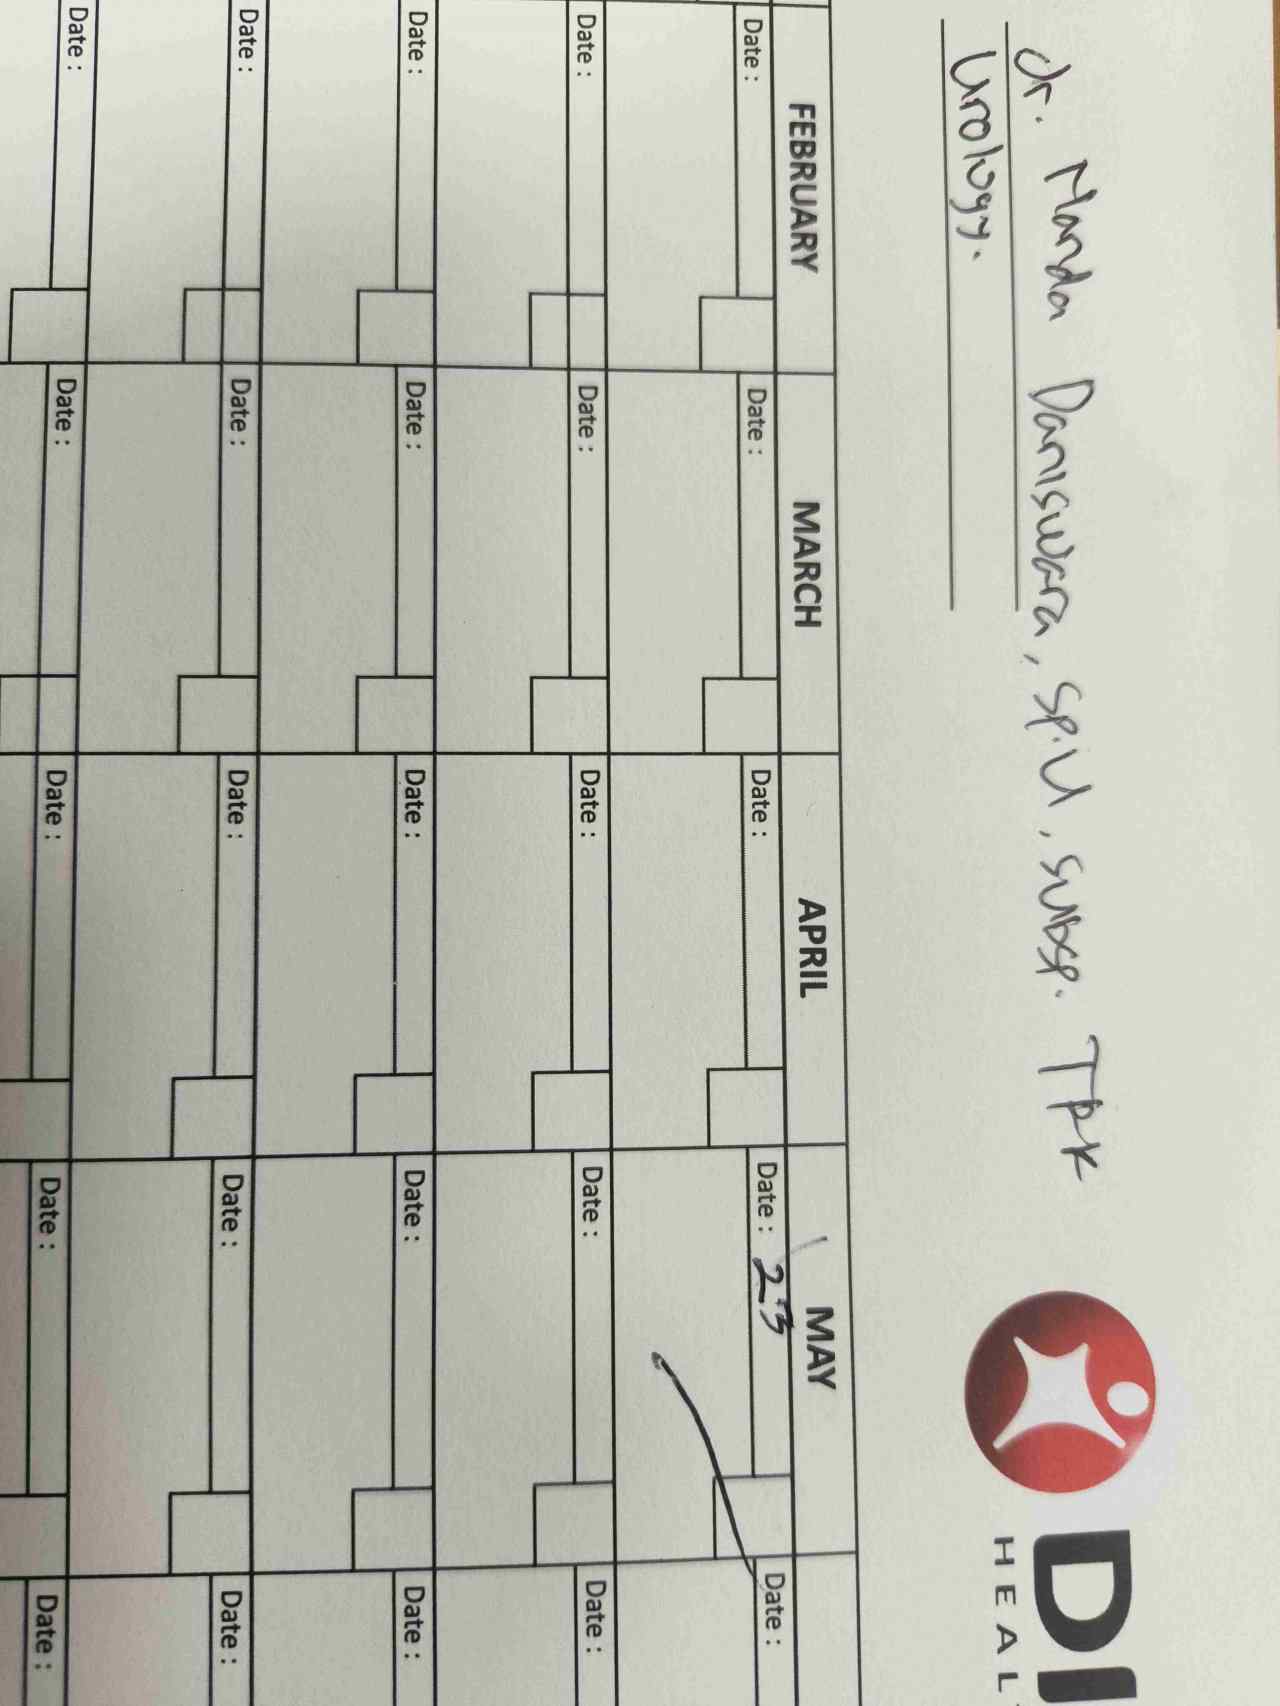 dr. Manda Daniswara, Sp.U, subsp. TPK
Urology.
HEAL
FEBRUARY MARCH APRIL MAY
Date : Date : Date : Date : 23 Date :
Date : Date : Date : Date : Date :
Date : Date : Date : Date : Date :
Date : Date : Date : Date : Date :
Date : Date : Date : Date : Date :